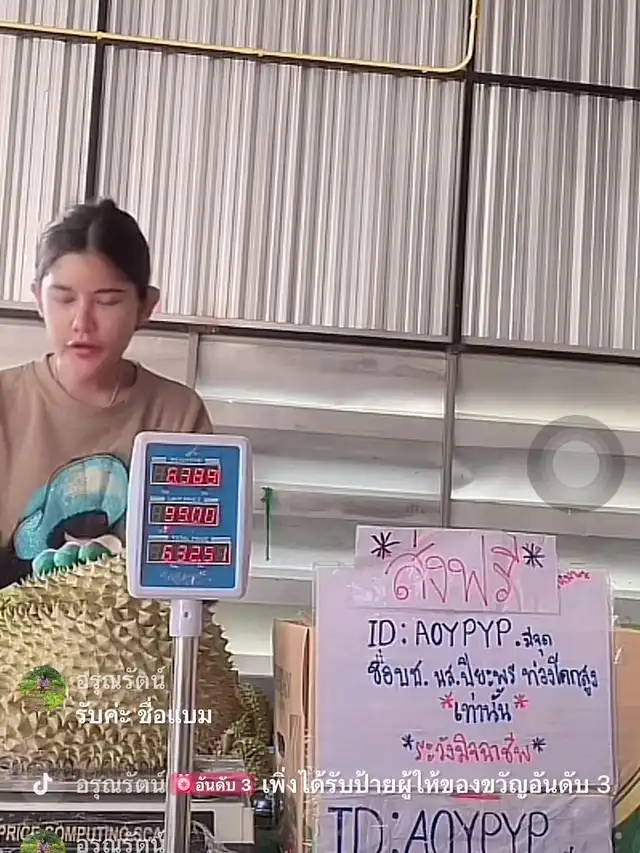 6.389
99.00
TOTAL PRICE
632.51
*ส่งฟรี*
ID: AOYPYP.มีจุด
ชื่อบช. นส.ปิยะพร ท่วงโคกสูง
*เท่านั้น*
*ระวังมิจฉาชีพ*
อรุณรัตน์
รับค่ะ ชื่อแบม
อรุณรัตน์ อันดับ 3 เพิ่งได้รับป้ายผู้ให้ของขวัญอันดับ 3
PRICE COMPUTING SCA
ID:AOYPYP
อรุณรัตน์